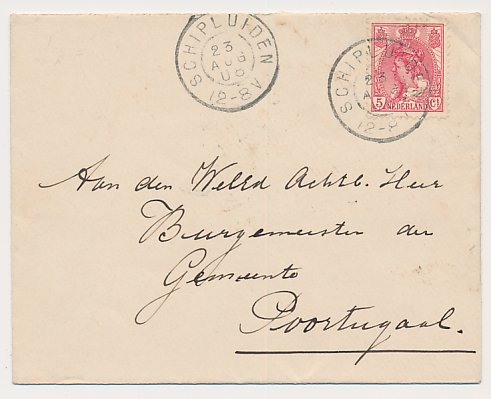 SCHIPLUIDEN
23
AUG
12-8V
SCHIPLUIDEN
23
12-8V
5 NEDERLAND Ct
Aan den WelEd Achtb. Heer
Burgemeester der
Gemeente
Poortugaal.